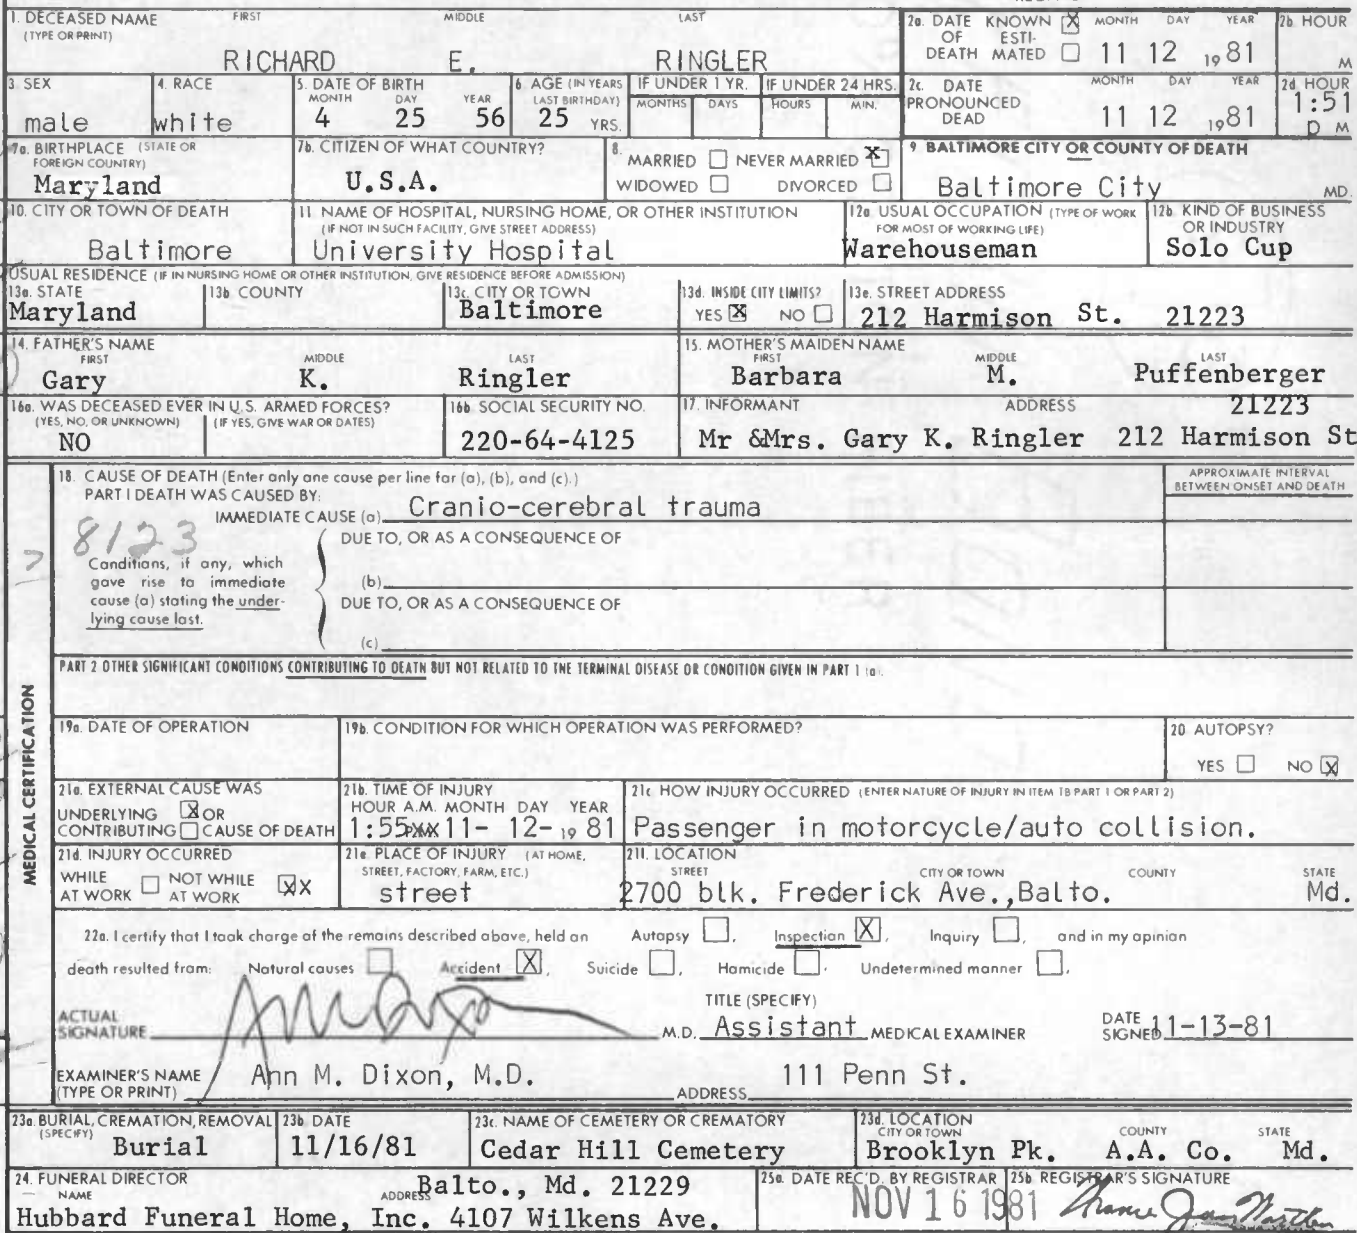 1. DECEASED NAME FIRST MIDDLE LAST
(TYPE OR PRINT)
RICHARD E. RINGLER
2a. DATE KNOWN X MONTH DAY YEAR
OF ESTI-
DEATH MATED 11 12 1981
2b. HOUR
M
3. SEX
male
4. RACE
white
5. DATE OF BIRTH
MONTH DAY YEAR
4 25 56
6. AGE (IN YEARS
LAST BIRTHDAY)
25 YRS.
IF UNDER 1 YR.
MONTHS DAYS
IF UNDER 24 HRS.
HOURS MIN.
2c. DATE MONTH DAY YEAR
PRONOUNCED
DEAD 11 12 1981
2d. HOUR
1:51
P M
7a. BIRTHPLACE (STATE OR
FOREIGN COUNTRY)
Maryland
7b. CITIZEN OF WHAT COUNTRY?
U.S.A.
8.
MARRIED NEVER MARRIED X
WIDOWED DIVORCED
9. BALTIMORE CITY OR COUNTY OF DEATH
Baltimore City MD.
10. CITY OR TOWN OF DEATH
Baltimore
11. NAME OF HOSPITAL, NURSING HOME, OR OTHER INSTITUTION
(IF NOT IN SUCH FACILITY, GIVE STREET ADDRESS)
University Hospital
12a. USUAL OCCUPATION (TYPE OF WORK
FOR MOST OF WORKING LIFE)
Warehouseman
12b. KIND OF BUSINESS
OR INDUSTRY
Solo Cup
USUAL RESIDENCE (IF IN NURSING HOME OR OTHER INSTITUTION, GIVE RESIDENCE BEFORE ADMISSION)
13a. STATE
Maryland
13b. COUNTY
13c. CITY OR TOWN
Baltimore
13d. INSIDE CITY LIMITS?
YES X NO
13e. STREET ADDRESS
212 Harmison St. 21223
14. FATHER'S NAME
FIRST MIDDLE LAST
Gary K. Ringler
15. MOTHER'S MAIDEN NAME
FIRST MIDDLE LAST
Barbara M. Puffenberger
16a. WAS DECEASED EVER IN U.S. ARMED FORCES?
(YES, NO, OR UNKNOWN) (IF YES, GIVE WAR OR DATES)
NO
16b. SOCIAL SECURITY NO.
220-64-4125
17. INFORMANT ADDRESS 21223
Mr &Mrs. Gary K. Ringler 212 Harmison St
MEDICAL CERTIFICATION
18. CAUSE OF DEATH (Enter only one cause per line for (a), (b), and (c).)
PART I DEATH WAS CAUSED BY:
IMMEDIATE CAUSE (a) Cranio-cerebral trauma
APPROXIMATE INTERVAL
BETWEEN ONSET AND DEATH
8123
DUE TO, OR AS A CONSEQUENCE OF
Conditions, if any, which
gave rise to immediate
cause (a) stating the under-
lying cause last.
(b)
DUE TO, OR AS A CONSEQUENCE OF
(c)
PART 2 OTHER SIGNIFICANT CONDITIONS CONTRIBUTING TO DEATH BUT NOT RELATED TO THE TERMINAL DISEASE OR CONDITION GIVEN IN PART 1 (a).
19a. DATE OF OPERATION
19b. CONDITION FOR WHICH OPERATION WAS PERFORMED?
20. AUTOPSY?
YES NO X
21a. EXTERNAL CAUSE WAS
UNDERLYING X OR
CONTRIBUTING CAUSE OF DEATH
21b. TIME OF INJURY
HOUR A.M. MONTH DAY YEAR
1:55 11- 12- 19 81
21c. HOW INJURY OCCURRED (ENTER NATURE OF INJURY IN ITEM 18 PART 1 OR PART 2)
Passenger in motorcycle/auto collision.
21d. INJURY OCCURRED
WHILE NOT WHILE
AT WORK AT WORK XX
21e. PLACE OF INJURY (AT HOME,
STREET, FACTORY, FARM, ETC.)
street
21f. LOCATION
STREET CITY OR TOWN COUNTY STATE
2700 blk. Frederick Ave.,Balto. Md.
22a. I certify that I took charge of the remains described above, held an Autopsy , Inspection X , Inquiry , and in my opinion
death resulted from: Natural causes Accident X , Suicide , Homicide , Undetermined manner .
ACTUAL
SIGNATURE M.D.
TITLE (SPECIFY)
Assistant MEDICAL EXAMINER
DATE
SIGNED 11-13-81
EXAMINER'S NAME
(TYPE OR PRINT) Ann M. Dixon, M.D.
ADDRESS 111 Penn St.
23a. BURIAL, CREMATION, REMOVAL
(SPECIFY)
Burial
23b. DATE
11/16/81
23c. NAME OF CEMETERY OR CREMATORY
Cedar Hill Cemetery
23d. LOCATION
CITY OR TOWN COUNTY STATE
Brooklyn Pk. A.A. Co. Md.
24. FUNERAL DIRECTOR
NAME ADDRESS Balto., Md. 21229
Hubbard Funeral Home, Inc. 4107 Wilkens Ave.
25a. DATE REC'D. BY REGISTRAR
NOV 16 1981
25b. REGISTRAR'S SIGNATURE